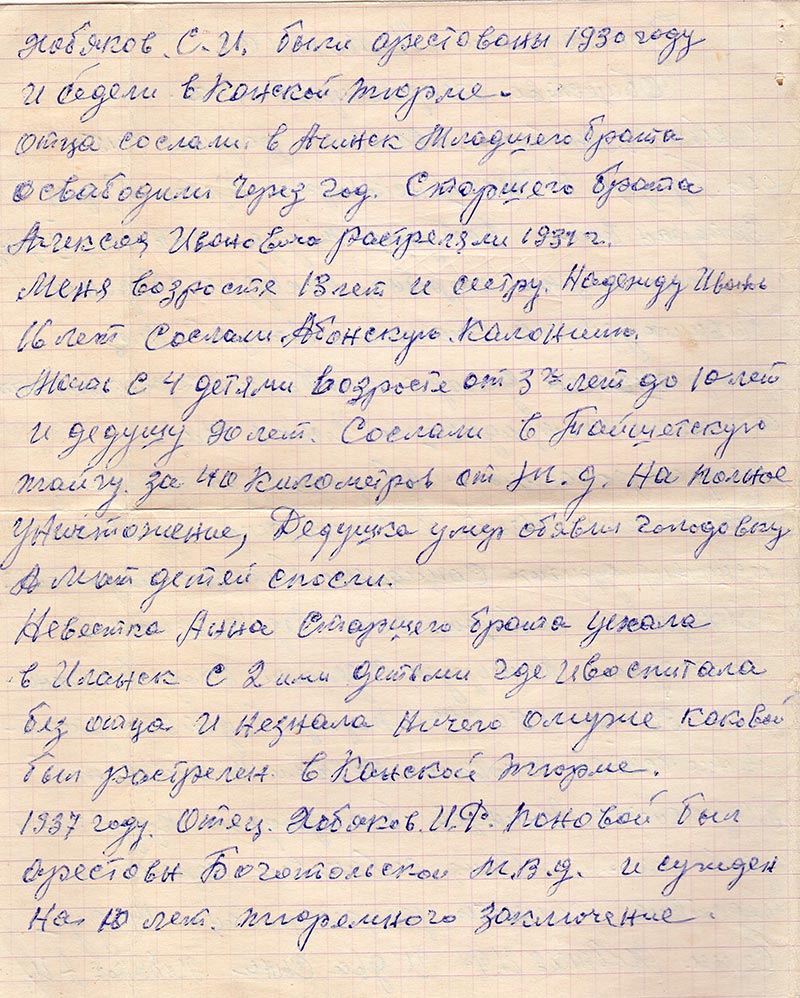 Хобяков. С.И. были арестованы 1930 году
и седели в Канской тюрме.
отца сослали в Ачинск Младшего брата
освабодили через год. Старшего брата
Алексея Ивановича растреляли 1931 г.
Меня возросте 13 лет и сестру. Надежду Иван
16 лет Сослали Абанскую. Калонию.
Мать с 4 детями возросте от 3х лет до 10 лет
и дедушу 90 лет. Сослали в Тайшетскую
тайгу. за 40 километров от Ж.д. На полное
уничтожение, Дедушка умер обявил голодовку
А Мать детей спосли.
Невестка Анна Старшего брата уехала
в Иланск с 2 ими детьми где и воспитала
без отца. И незнала ничего омуже каковой
был растрелен. в Канской тюрме.
1937 году. Отец. Хобяков. И.Ф. поновой был
арестовн Боготольской М.В.Д. и сужден
на 10 лет. тюремного заключение.